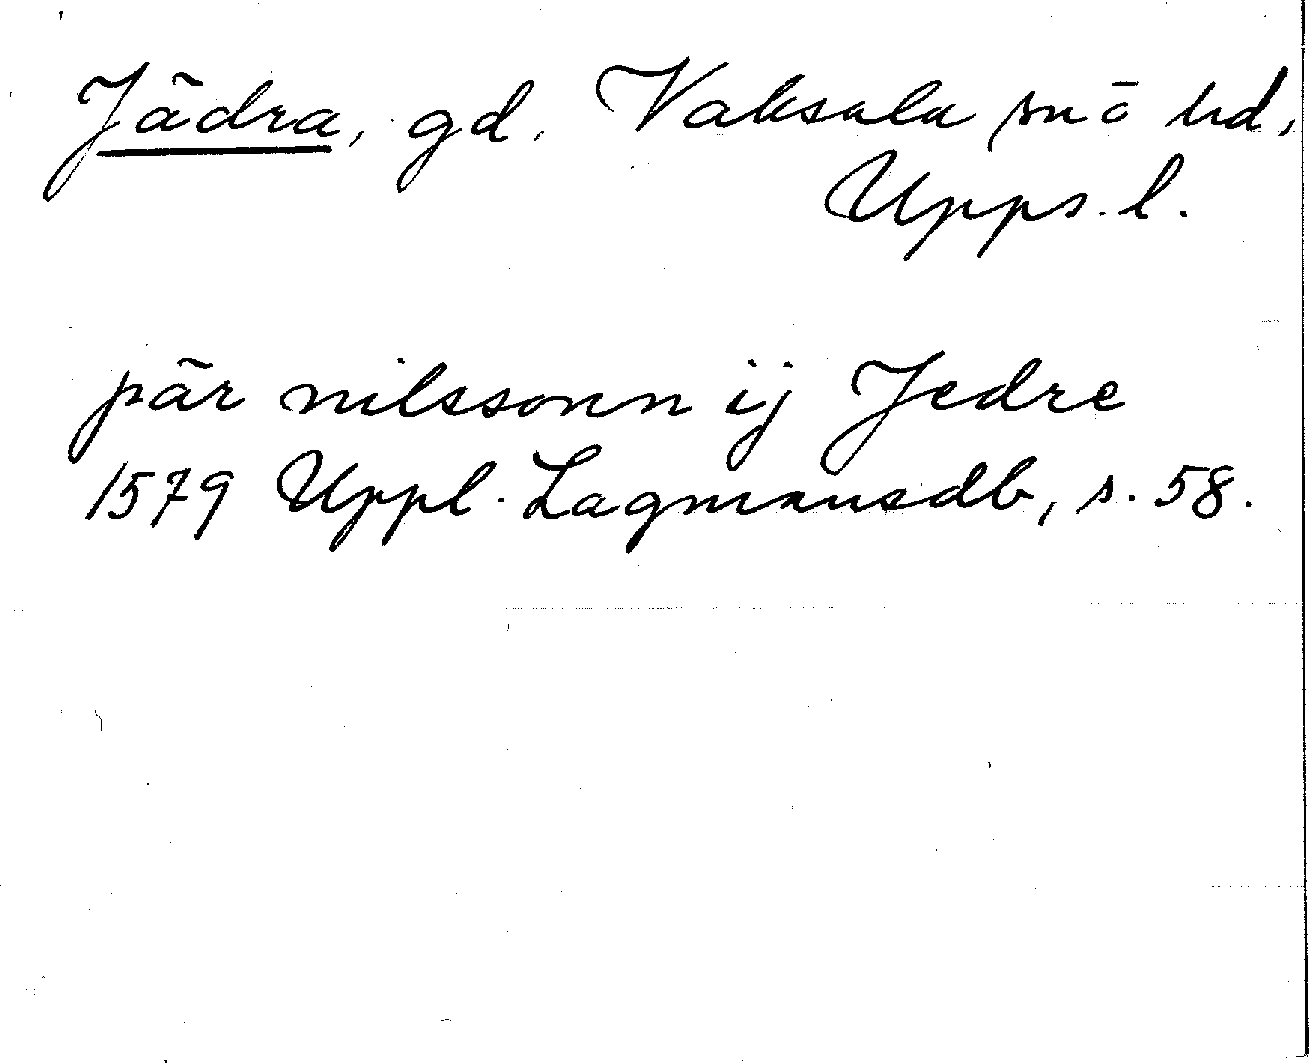 Jädra, gd. Vaksala sn o hd,
Upps. l.
pär nilssonn ij Jedre
1579 Uppl. Lagmansdb, s. 58.